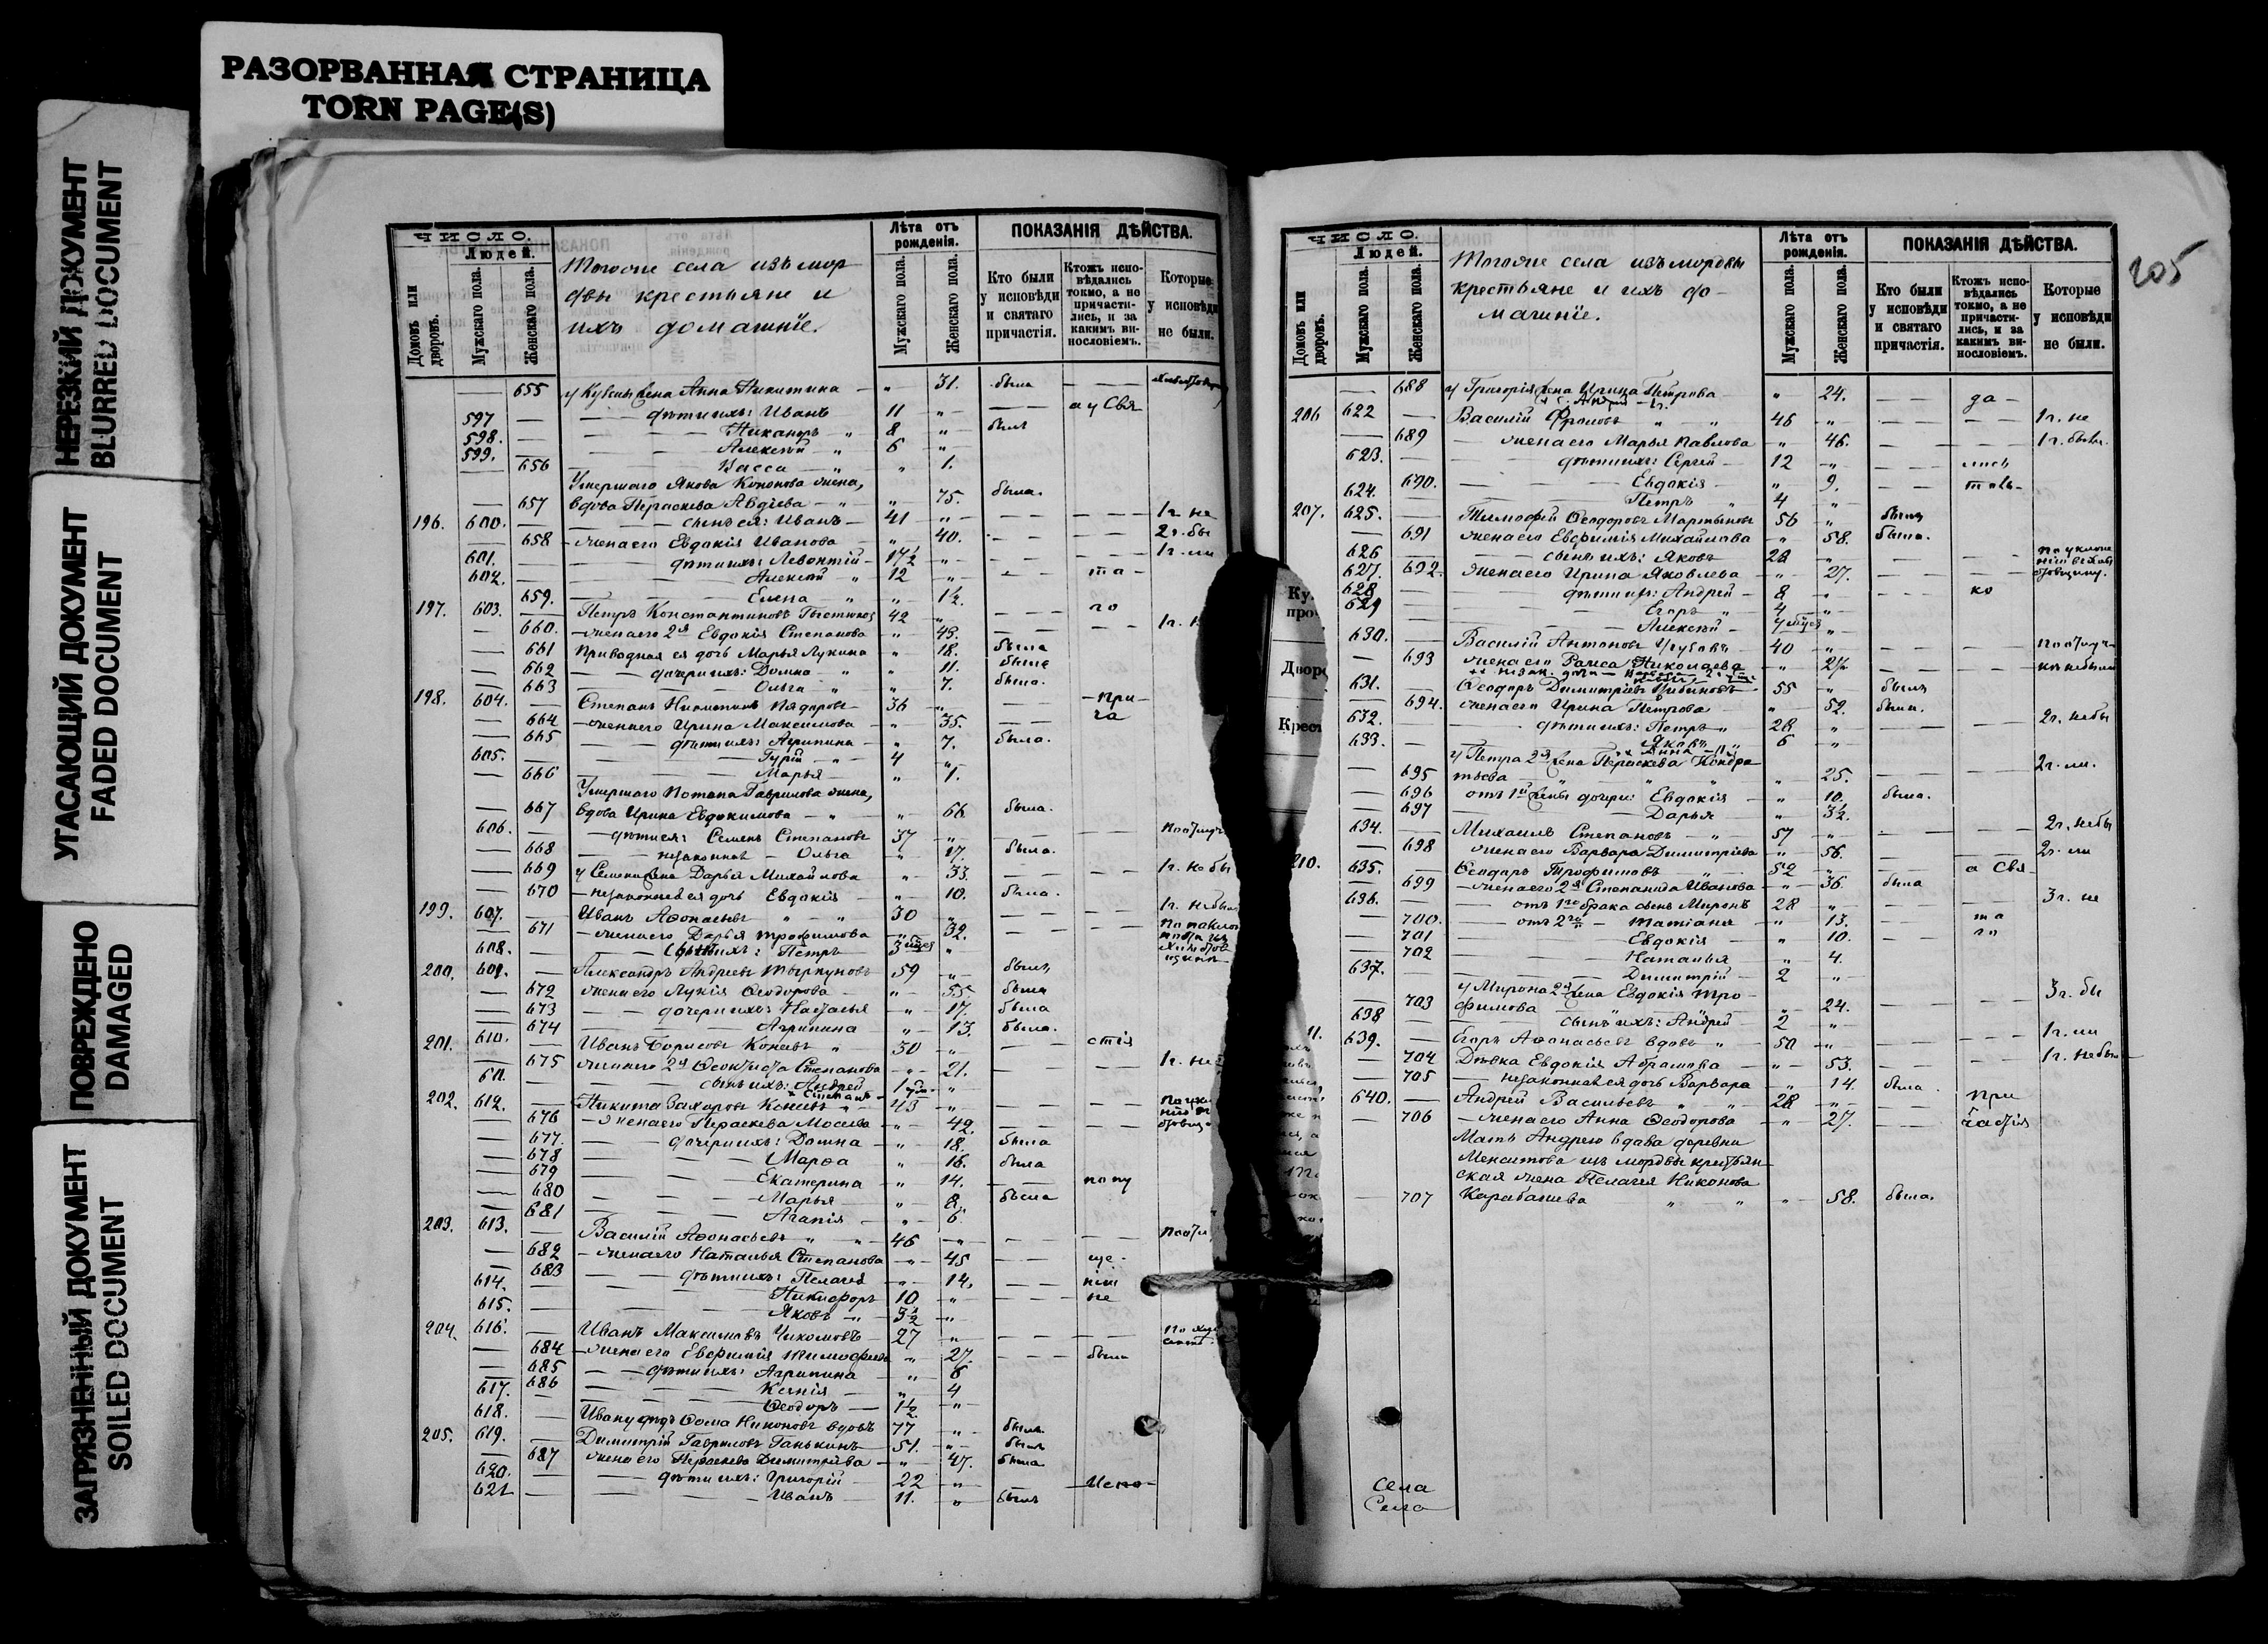 РАЗОРВАННАЯ СТРАНИЦА
TORN PAGE(S)
НЕРЕЗКИЙ ДОКУМЕНТ
BLURRED DOCUMENT
УГАСАЮЩИЙ ДОКУМЕНТ
FADED DOCUMENT
ПОВРЕЖДЕНО
DAMAGED
ЗАГРЯЗНЕННЫЙ ДОКУМЕНТ
SOILED DOCUMENT
ЧИСЛО.
Людей.
Домовъ или дворовъ.
Мужскаго пола.
Женскаго пола.
Тогоже села изъ мор
двы крестьяне и
ихъ домашніе.
Лѣта отъ рожденія.
Мужскаго пола.
Женскаго пола.
ПОКАЗАНІЯ ДѢЙСТВА.
Кто были у исповѣди и святаго причастія.
Ктожъ испо-вѣдались токмо, а не причасти-лись, и за какимъ ви-нословіемъ.
Которые у исповѣди не были.
655 жена Анна Никитина " 31. была
597 — дѣти ихъ: Иванъ 11 " а у Свя
598. — Никаноръ " 8 " былъ
599. — Алексѣй " 6 "
656 Васса " " 1.
Умершаго Якова Кононова жена,
657 вдова Пераскева Авдіева " 75. была.
196. 600. — сынъ ея: Иванъ 41 " 1 г. не
658 жена его Евдокія Иванова " 40. 2 г. бы
601. — дѣти ихъ: Левонтій 17½ " 1 г. ли
602. — Алексѣй " 12 " та-
659. Елена " 1½.
197. 603. — Петръ Константиновъ 42 " го
660. жена его 2я Евдокія Степанова " 45. 1 г.
661 Приводная ея дочь Марья Лукина " 18. была
662 дочери ихъ: Домна " 11. была
663 Ольга " 7. была.
198. 604. — Степанъ Никитинъ 36 " при-
664 жена его Ирина Максимова " 35. ча
665 дѣти ихъ: Агрипина " 7. была.
605. — Гурій 4 "
666 Марья " 1.
Умершаго Потапа Гаврилова жена,
667 вдова Ирина Евдокимова " 66. была.
606. — дѣти ея: Семенъ Степановъ 37 "
668 незаконная Ольга " 17. была.
669 у Семена жена Дарья Михайлова " 33. 1 г. не бы
670 незаконная ея дочь Евдокія " 10. была.
199. 607. — Иванъ Аѳонасьевъ 30 "
671 жена его Дарья Трофимова " 32.
608. — сынъ ихъ: Петръ 3 мѣся "
200. 609. — Александръ Андреевъ 59 " былъ
672 жена его Лукія Ѳеодорова " 55 была
673 дочери ихъ: Наталья " 17. была
674 Агрипина " 13. была.
201. 610. — Иванъ Борисовъ Коневъ 30 " стія
675 жена его 2я Ѳеоктиста Степанова " 21. 1 г. не
611. — сынъ ихъ: Андрей 1 "
202. 612. — Никита Захаровъ Коневъ 43 "
676 жена его Пераскева Мосеева " 42.
677. дочери ихъ: Домна " 18. была
678 Марѳа " 16. была
679 Екатерина " 14. по пу
680 Марья " 8. была
681 Агапія " 6.
203. 613. — Василій Аѳонасьевъ 46 "
682 жена его Наталья Степанова " 45 ще-
683 дѣти ихъ: Пелагея " 14. нію
614. — Никифоръ 10 " не
615. — Яковъ 3½ "
204. 616. — Иванъ Максимовъ Чикомовъ 27 "
684 жена его Евфимія Тимофеева " 27. была
685 дѣти ихъ: Агрипина " 6
686 Ксенія " 4
617. — Ѳеодоръ 1½ "
618. — Ивану дядя Ѳома Никоновъ вдовъ 77 " былъ.
205. 619. — Димитрій Гавриловъ Ганькинъ 51. " былъ
687 жена его Пераскева Димитріева " 47. была.
620. — дѣти ихъ: Григорій 22 " Испо-
621 — Иванъ 11. " былъ
205
ЧИСЛО.
Людей.
Домовъ или дворовъ.
Мужскаго пола.
Женскаго пола.
Тогоже села изъ мордвы
крестьяне и ихъ до-
машніе.
Лѣта отъ рожденія.
Мужскаго пола.
Женскаго пола.
ПОКАЗАНІЯ ДѢЙСТВА.
Кто были у исповѣди и святаго причастія.
Ктожъ испо-вѣдались токмо, а не причасти-лись, и за какимъ ви-нословіемъ.
Которые у исповѣди не были.
688 у Григорія жена Ирина Петрова " 24. да-
206 622 — Василій Фроловъ 46 " 1 г. не
689 жена его Марья Павлова " 46. 1 г. бывъ.
623. — дѣти ихъ: Сергѣй 12 " лись
690. Евдокія " 9. токъ-
624. — Петръ 4 "
207. 625. — Тимофей Ѳеодоровъ Мартыновъ 56 " былъ
691 жена его Евфимія Михайлова " 58. была.
626 — сынъ ихъ: Яковъ 28 "
627. 692. жена его Ирина Яковлева " 27.
628 дѣти ихъ: Андрей 8 " ко
629 Егоръ 4 "
Алексѣй 7 мѣся "
630. — Василій Антоновъ 40 "
693 жена его Раиса Николаева "
631. — Ѳеодоръ Димитріевъ 55 " былъ
694. жена его Ирина Петрова " 52. была.
632. дѣти ихъ: Петръ 28 " 2 г. не бы
633. — Яковъ 6 "
у Петра 2я жена Пераскева Кондра
695 тьева " 25. 2 г. ли.
696 отъ 1й жены дочери: Евдокія " 10. была.
697 Дарья " 3½.
634. — Михаилъ Степановъ 57 " 2 г. не бы
698 жена его Варвара Димитріева " 56. 2 г. ли
210. 635. — Ѳеодоръ Трофимовъ 52 " а Свя
699 жена его 2я Степанида Иванова " 36. была
636. отъ 1го брака сынъ Миронъ 28 " 3 г. не
700. отъ 2го Татіана " 13. та
701 Евдокія " 10. го
702 Наталья " 4.
637. Димитрій 2 "
у Мирона 2я жена Евдокія Тро-
703 фимова " 24. 3 г. бы
638 — сынъ ихъ: Андрей 2 "
11. 639. — Егоръ Аѳонасьевъ вдовъ 50 " 1 г. ли
704 Дѣвка Евдокія Абрамова " 53. 1 г. не бы
705 незаконная ея дочь Варвара " 14. была.
640. — Андрей Васильевъ 28 " при
706 жена его Анна Ѳеодорова " 27. частія
Мать Андрею вдова деревни
изъ мордвы крестьян-
ская жена Пелагея Никонова
707 Карабашева " 58. была.
Ку
про
Двор
Крест
Села
Села